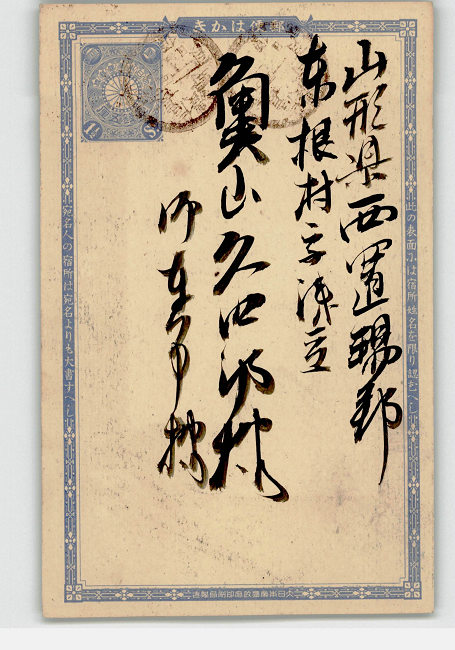 郵便はかき
山形県西置賜郡
東根村字浅立
奥山久四郎様
此の表面には宿所姓名を限り認むへし
宛名人の宿所は宛名よりも大書すへし
大日本帝國政府印刷局製造